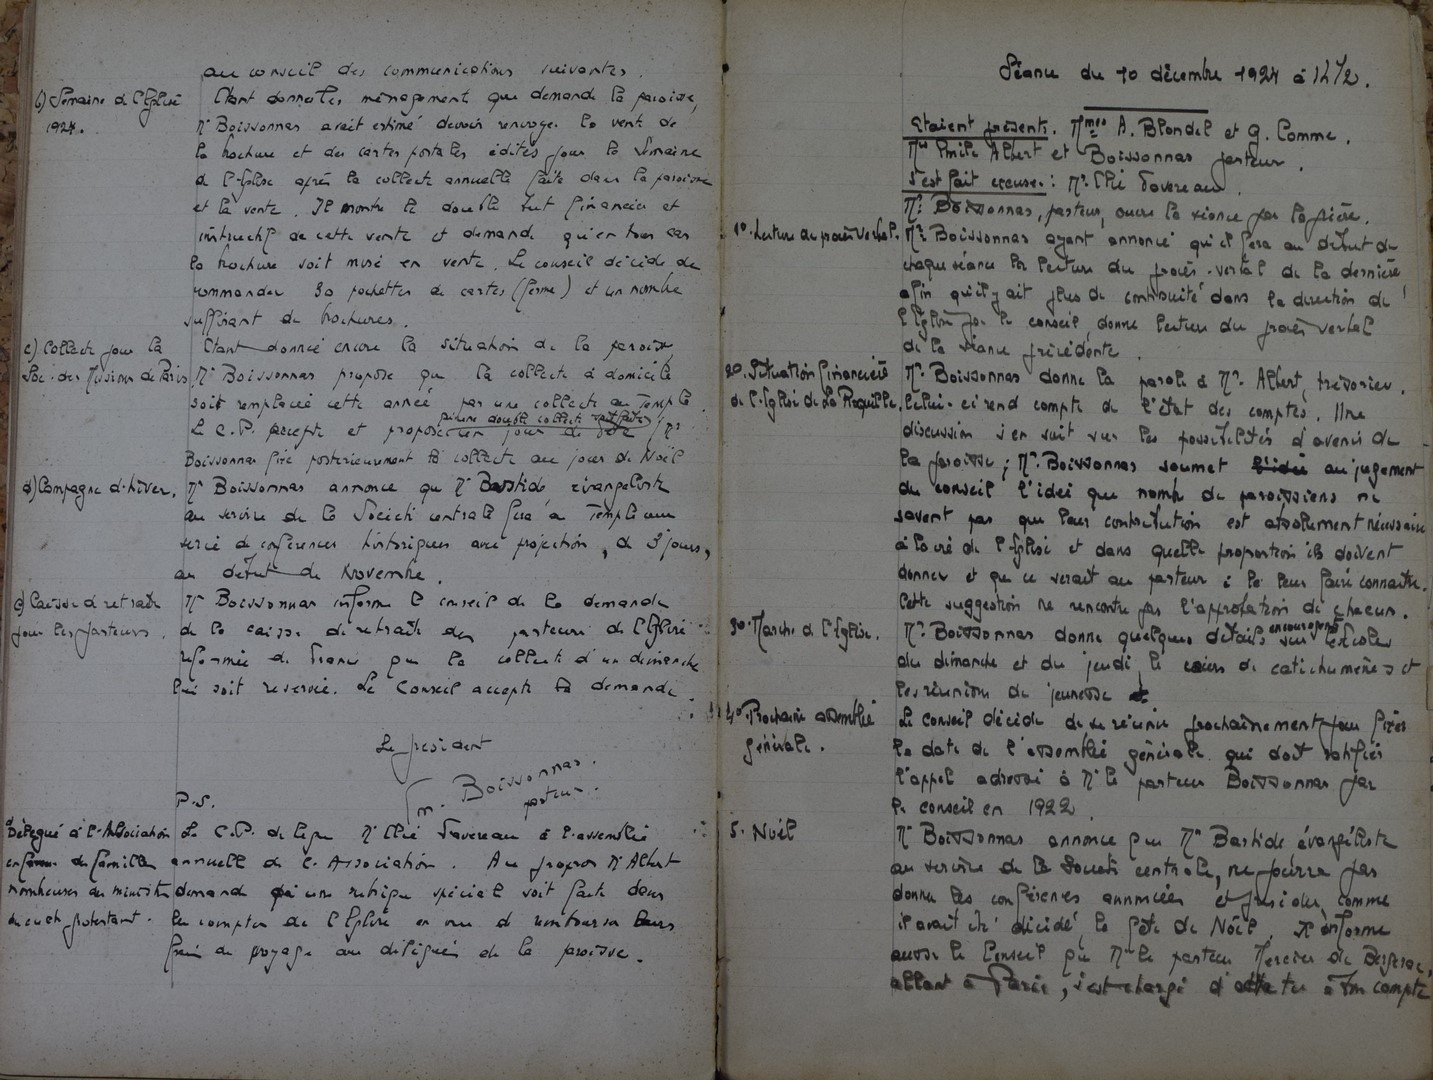 au conseil des communications suivantes.
b) Semaine de l'Eglise
1924.
Etant donné les ménagements que demande la paroisse,
Mr Boissonnas avait estimé devoir renvoyer la vente de
la brochure et des cartes postales édités pour la Semaine
de l'Eglise après la collecte annuelle faite dans la paroisse
et la vente. Il montre le double but financier et
instructif de cette vente et demande qu'en tous cas
la brochure soit mise en vente. Le conseil décide de
commander 30 pochettes de cartes (ferme) et un nombre
suffisant de brochures.
c) Collecte pour la
Soc. des Missions de Paris
Etant donné encore la situation de la paroisse,
Mr Boissonnas propose que la collecte à domicile
soit remplacée cette année par une collecte au Temple.
qu'une double collecte soit faite
Le C.P. accepte et propose un jour de fête ; Mr
Boissonnas fixe postérieurement la collecte au jour de Noël
d) Campagne d'hiver.
Mr Boissonnas annonce que Mr Bastide, évangéliste
au service de la Société centrale fera au Temple une
série de conférences historiques avec projection, de 3 jours,
au début de Novembre.
e) Caisse de retraite
pour les pasteurs.
Mr Boissonnas informe le conseil de la demande
de la caisse de retraite des pasteurs de l'Eglise
réformée de France que la collecte d'un dimanche
lui soit réservée. Le Conseil accepte la demande.
Le président
Boissonnas.
pasteur.
P.S.
Délégué à l'Association
de familles
nombreuses du ministère
du culte protestant.
Le C.P. délègue Mr Elie Favereau à l'assemblée
annuelle de l'Association. A ce propos Mr Albert
demande qu'une rubrique spéciale soit faite dans
les comptes de l'Eglise en vue de rembourser leurs
frais de voyage aux délégués de la paroisse.
Séance du 10 décembre 1924 à 14 1/2.
Etaient présents. Mmes A. Blondel et G. Comme.
Mrs Emile Albert et Boissonnas pasteur.
S'est fait excuser : Mr. Elie Favereau.
Mr. Boissonnas, pasteur, ouvre la séance par la prière.
1º. Lecture du procès verbal.
Mr. Boissonnas ayant annoncé qu'il fera au début de
chaque séance la lecture du procès-verbal de la dernière
afin qu'il y ait plus de continuité dans la direction de
l'Eglise par le conseil, donne lecture du procès verbal
de la séance précédente.
2º. Situation financière
de l'Eglise de La Roquille.
Mr. Boissonnas donne la parole à Mr. Albert, trésorier.
Celui-ci rend compte de l'état des comptes. Une
discussion s'en suit sur les possibilités d'avenir de
la paroisse ; Mr. Boissonnas soumet l'idée au jugement
du conseil l'idée que nomb. de paroissiens ne
savent pas que leur contribution est absolument nécessaire
à la vie de l'Eglise et dans quelle proportion ils doivent
donner et que ce serait au pasteur à le leur faire connaître.
Cette suggestion ne rencontre pas l'approbation de chacun.
3º. Marche de l'Eglise.
Mr. Boissonnas donne quelques détails encourageants sur l'Ecole
du dimanche et du jeudi, le cours de catéchumènes et
les réunions de jeunesse
4º. Prochaine assemblée
générale.
Le conseil décide de se réunir prochainement pour fixer
la date de l'assemblée générale qui doit ratifier
l'appel adressé à Mr le pasteur Boissonnas par
le conseil en 1922.
5. Noël
Mr Boissonnas annonce que Mr Bastide évangéliste
au service de la Société centrale, ne pourra pas
donner les conférences annoncées et présider, comme
il avait été décidé, la fête de Noël. Il informe
aussi le Conseil que Mr le pasteur Mercier de Bergerac,
allant à Paris, s'est chargé d'acheter à son compte